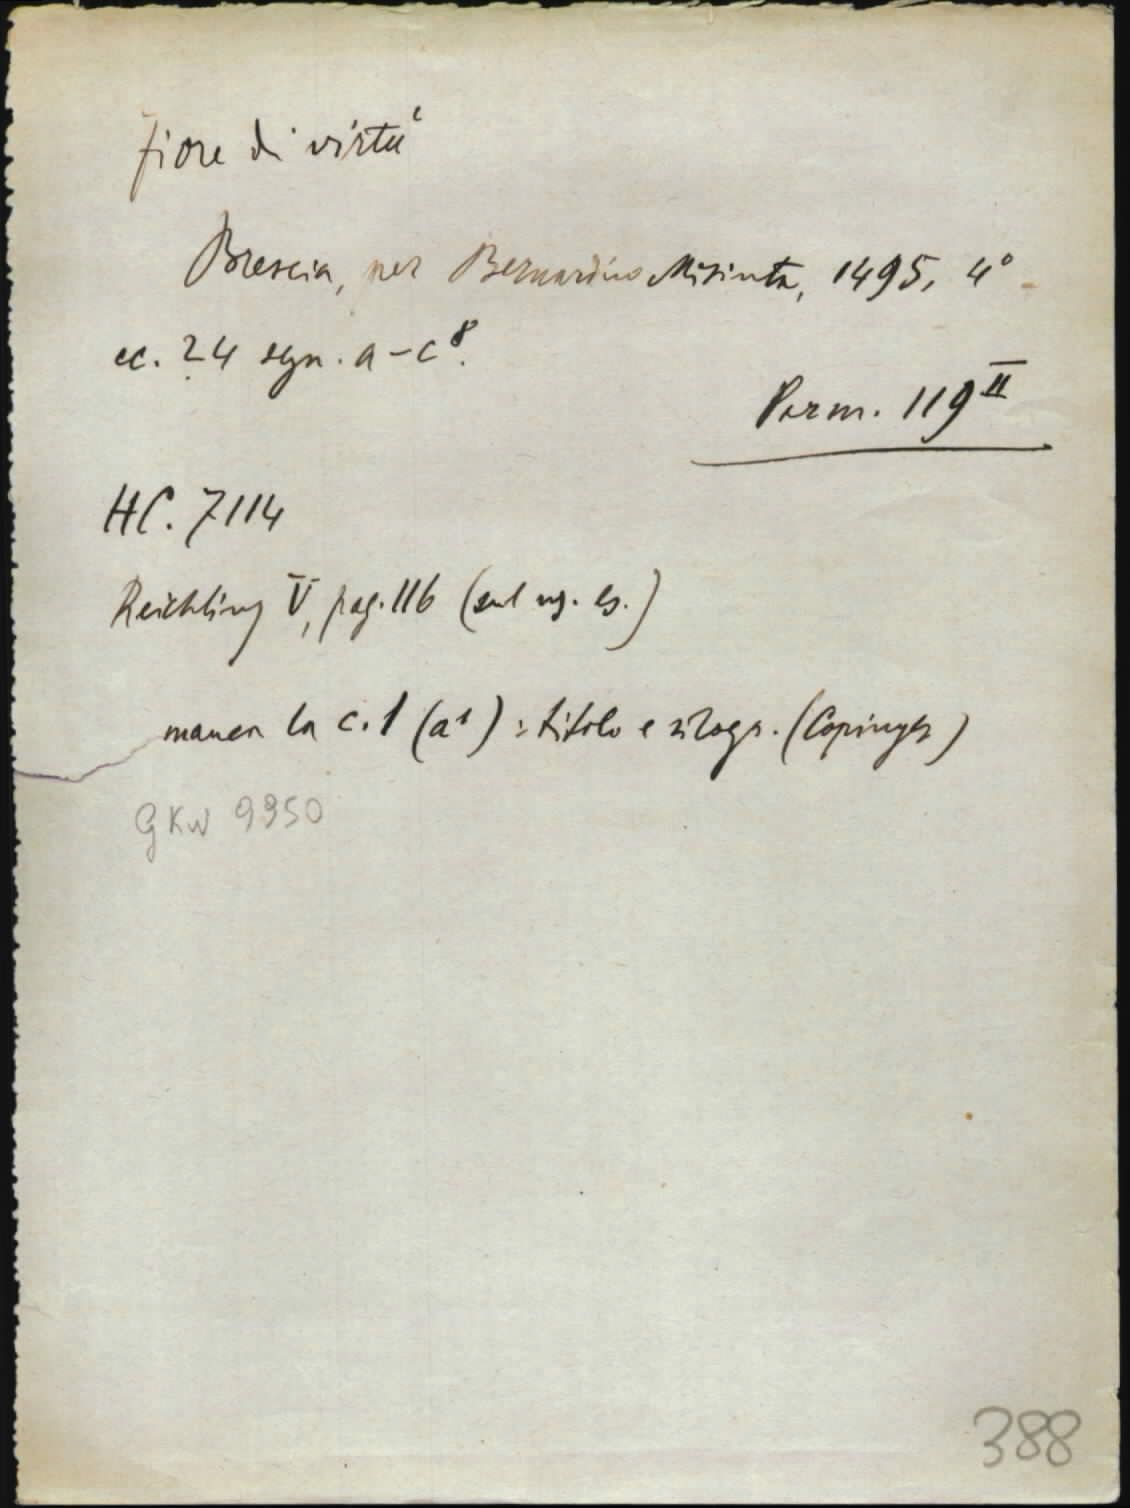 Fiore di virtù
Brescia, per Bernardino Misinta, 1495, 4°
cc. 24 segn. a-c⁸.
Parm. 119 II
HC. 7114
Reichling V, pag. 116 (sul ns. es.)
manca la c. 1 (a¹): titolo e silogr. (Copinger)
GKW 9950
388